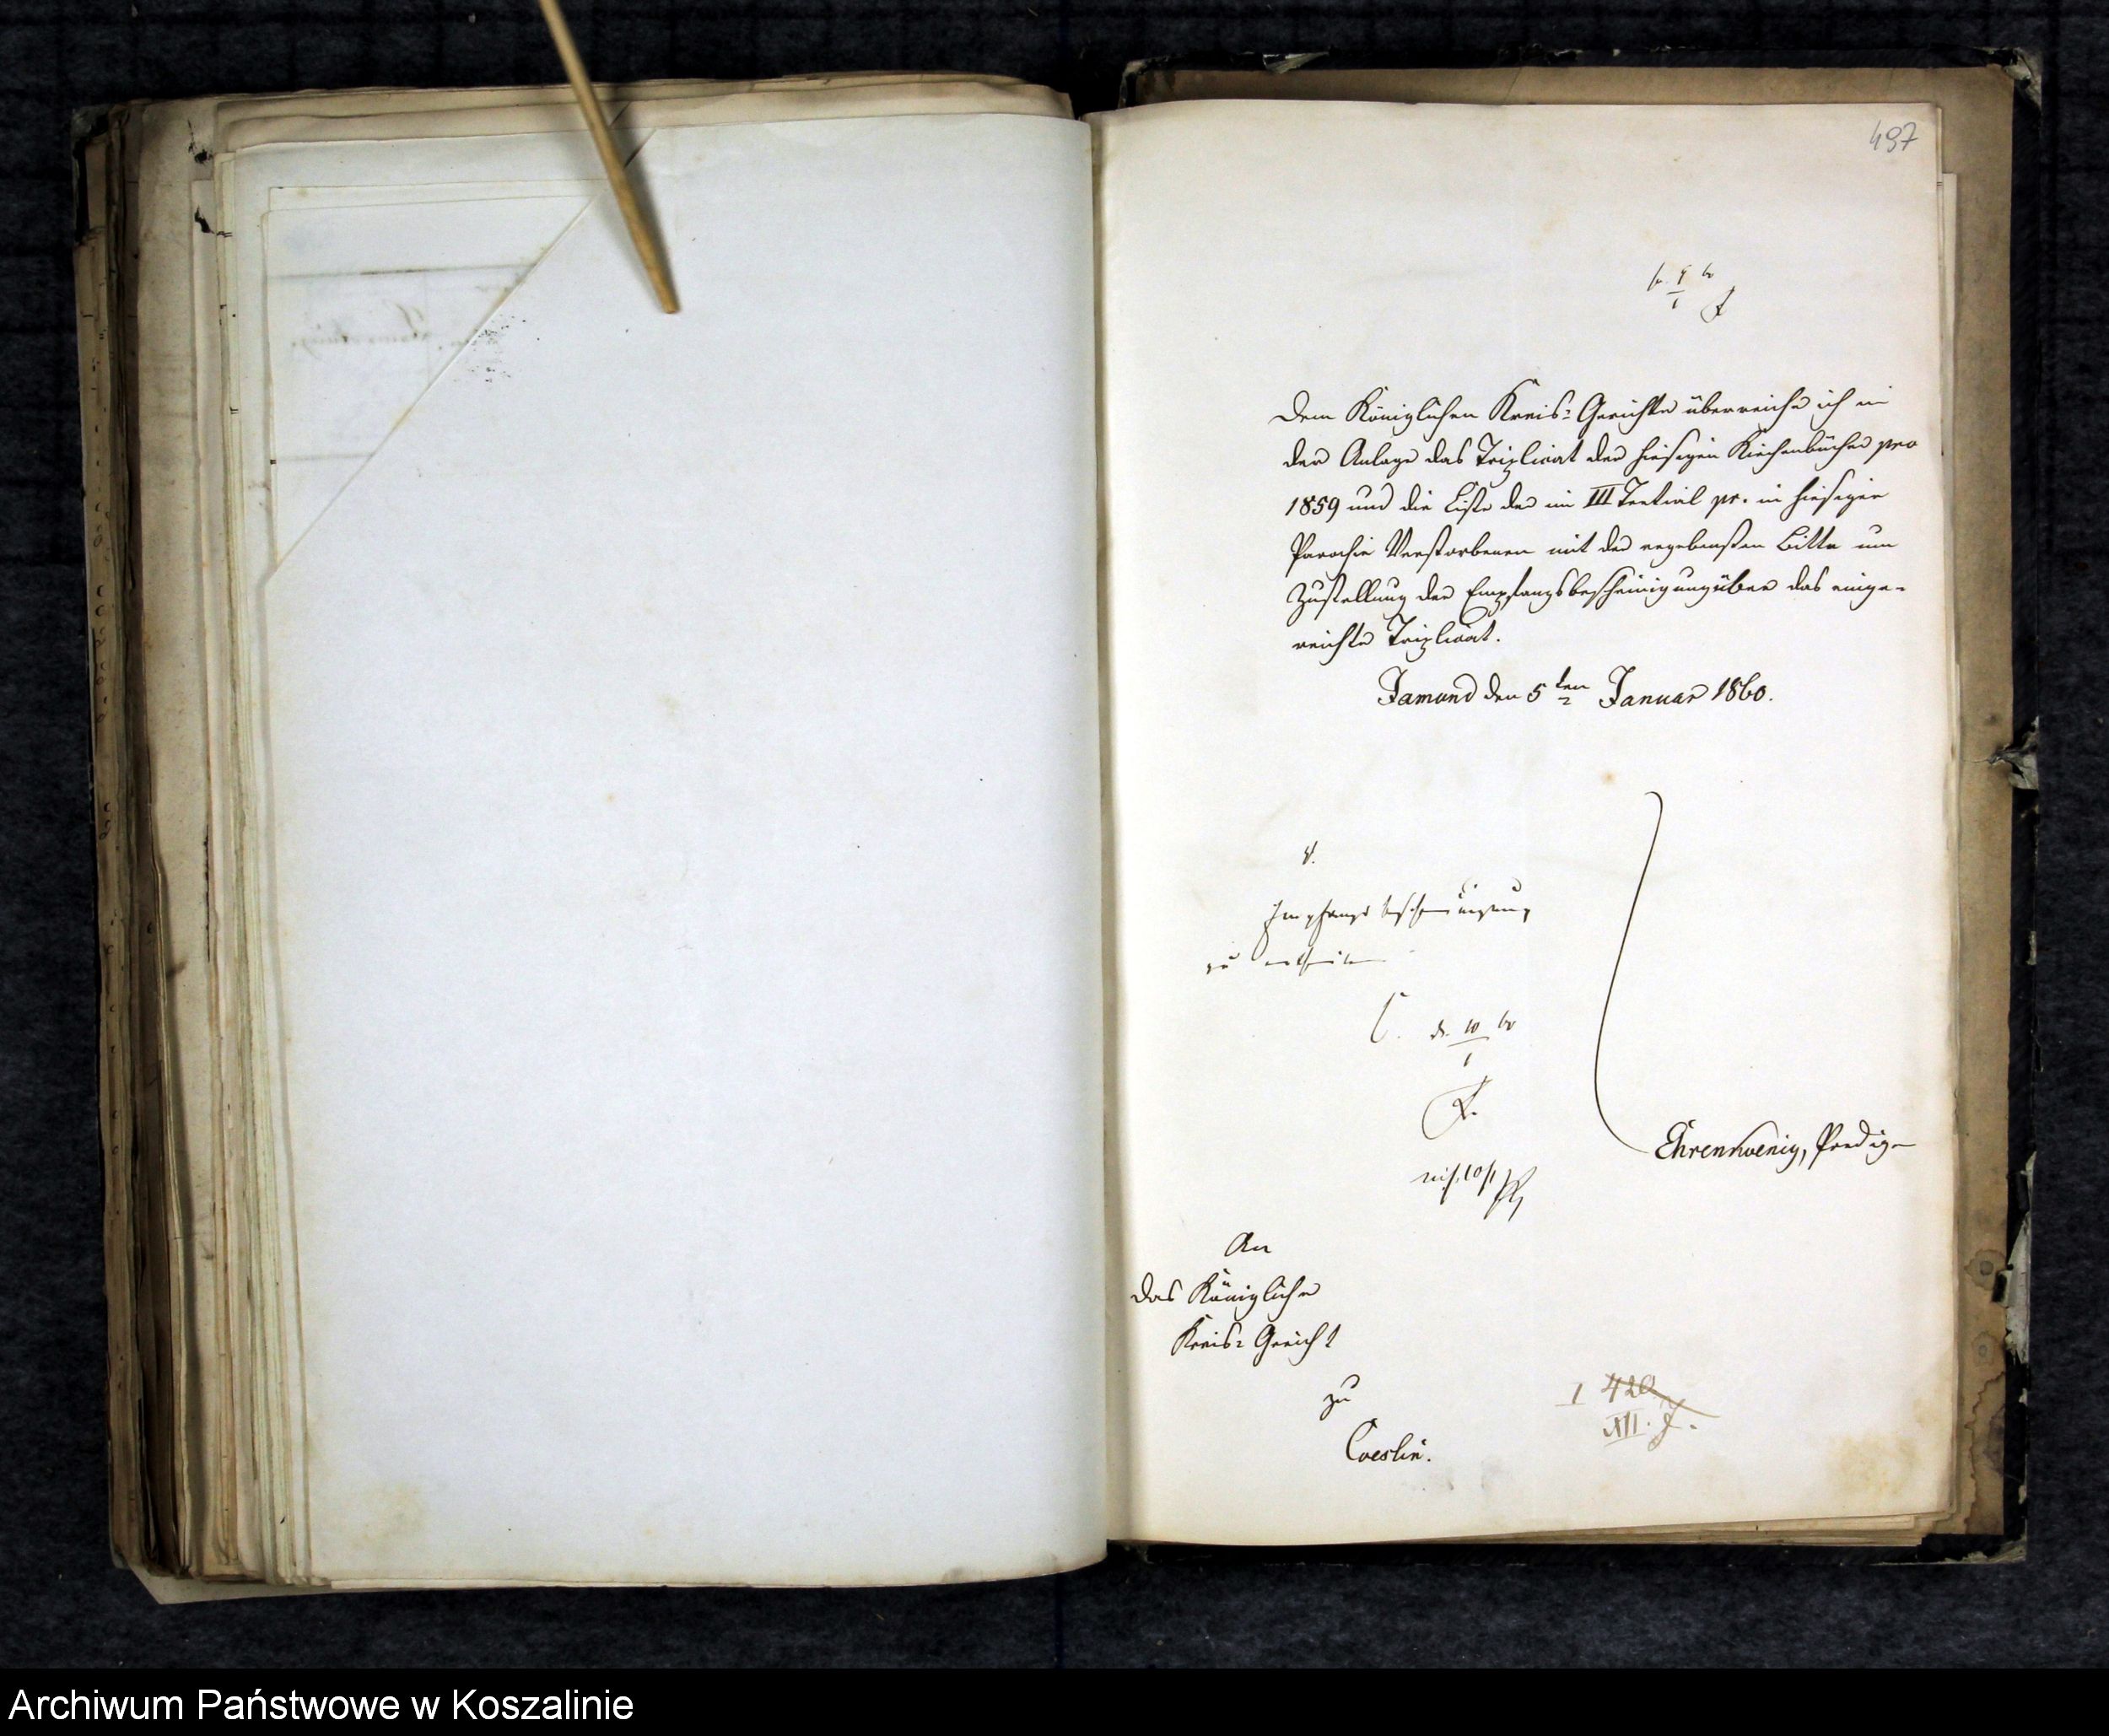 497
pr. 9/1 60
Dem Königlichen Kreis-Gerichte überreiche ich in
der Anlage das Triplicat der hiesigen Kirchenbücher pro
1859 und die Liste der im III Tertial pr. in hiesiger
Parochie Verstorbenen mit der ergebensten Bitte um
Zustellung der Empfangsbescheinigung über das einge-
reichte Triplicat.
Jamund den 5ten Januar 1860.
V.
Empfangsbescheinigung
zu ertheilen
C. d. 10/1 60
Ehrenkoenig, Prediger
An
das Königliche
Kreis-Gericht
zu
Coeslin.
I 420
XII.
Archiwum Państwowe w Koszalinie